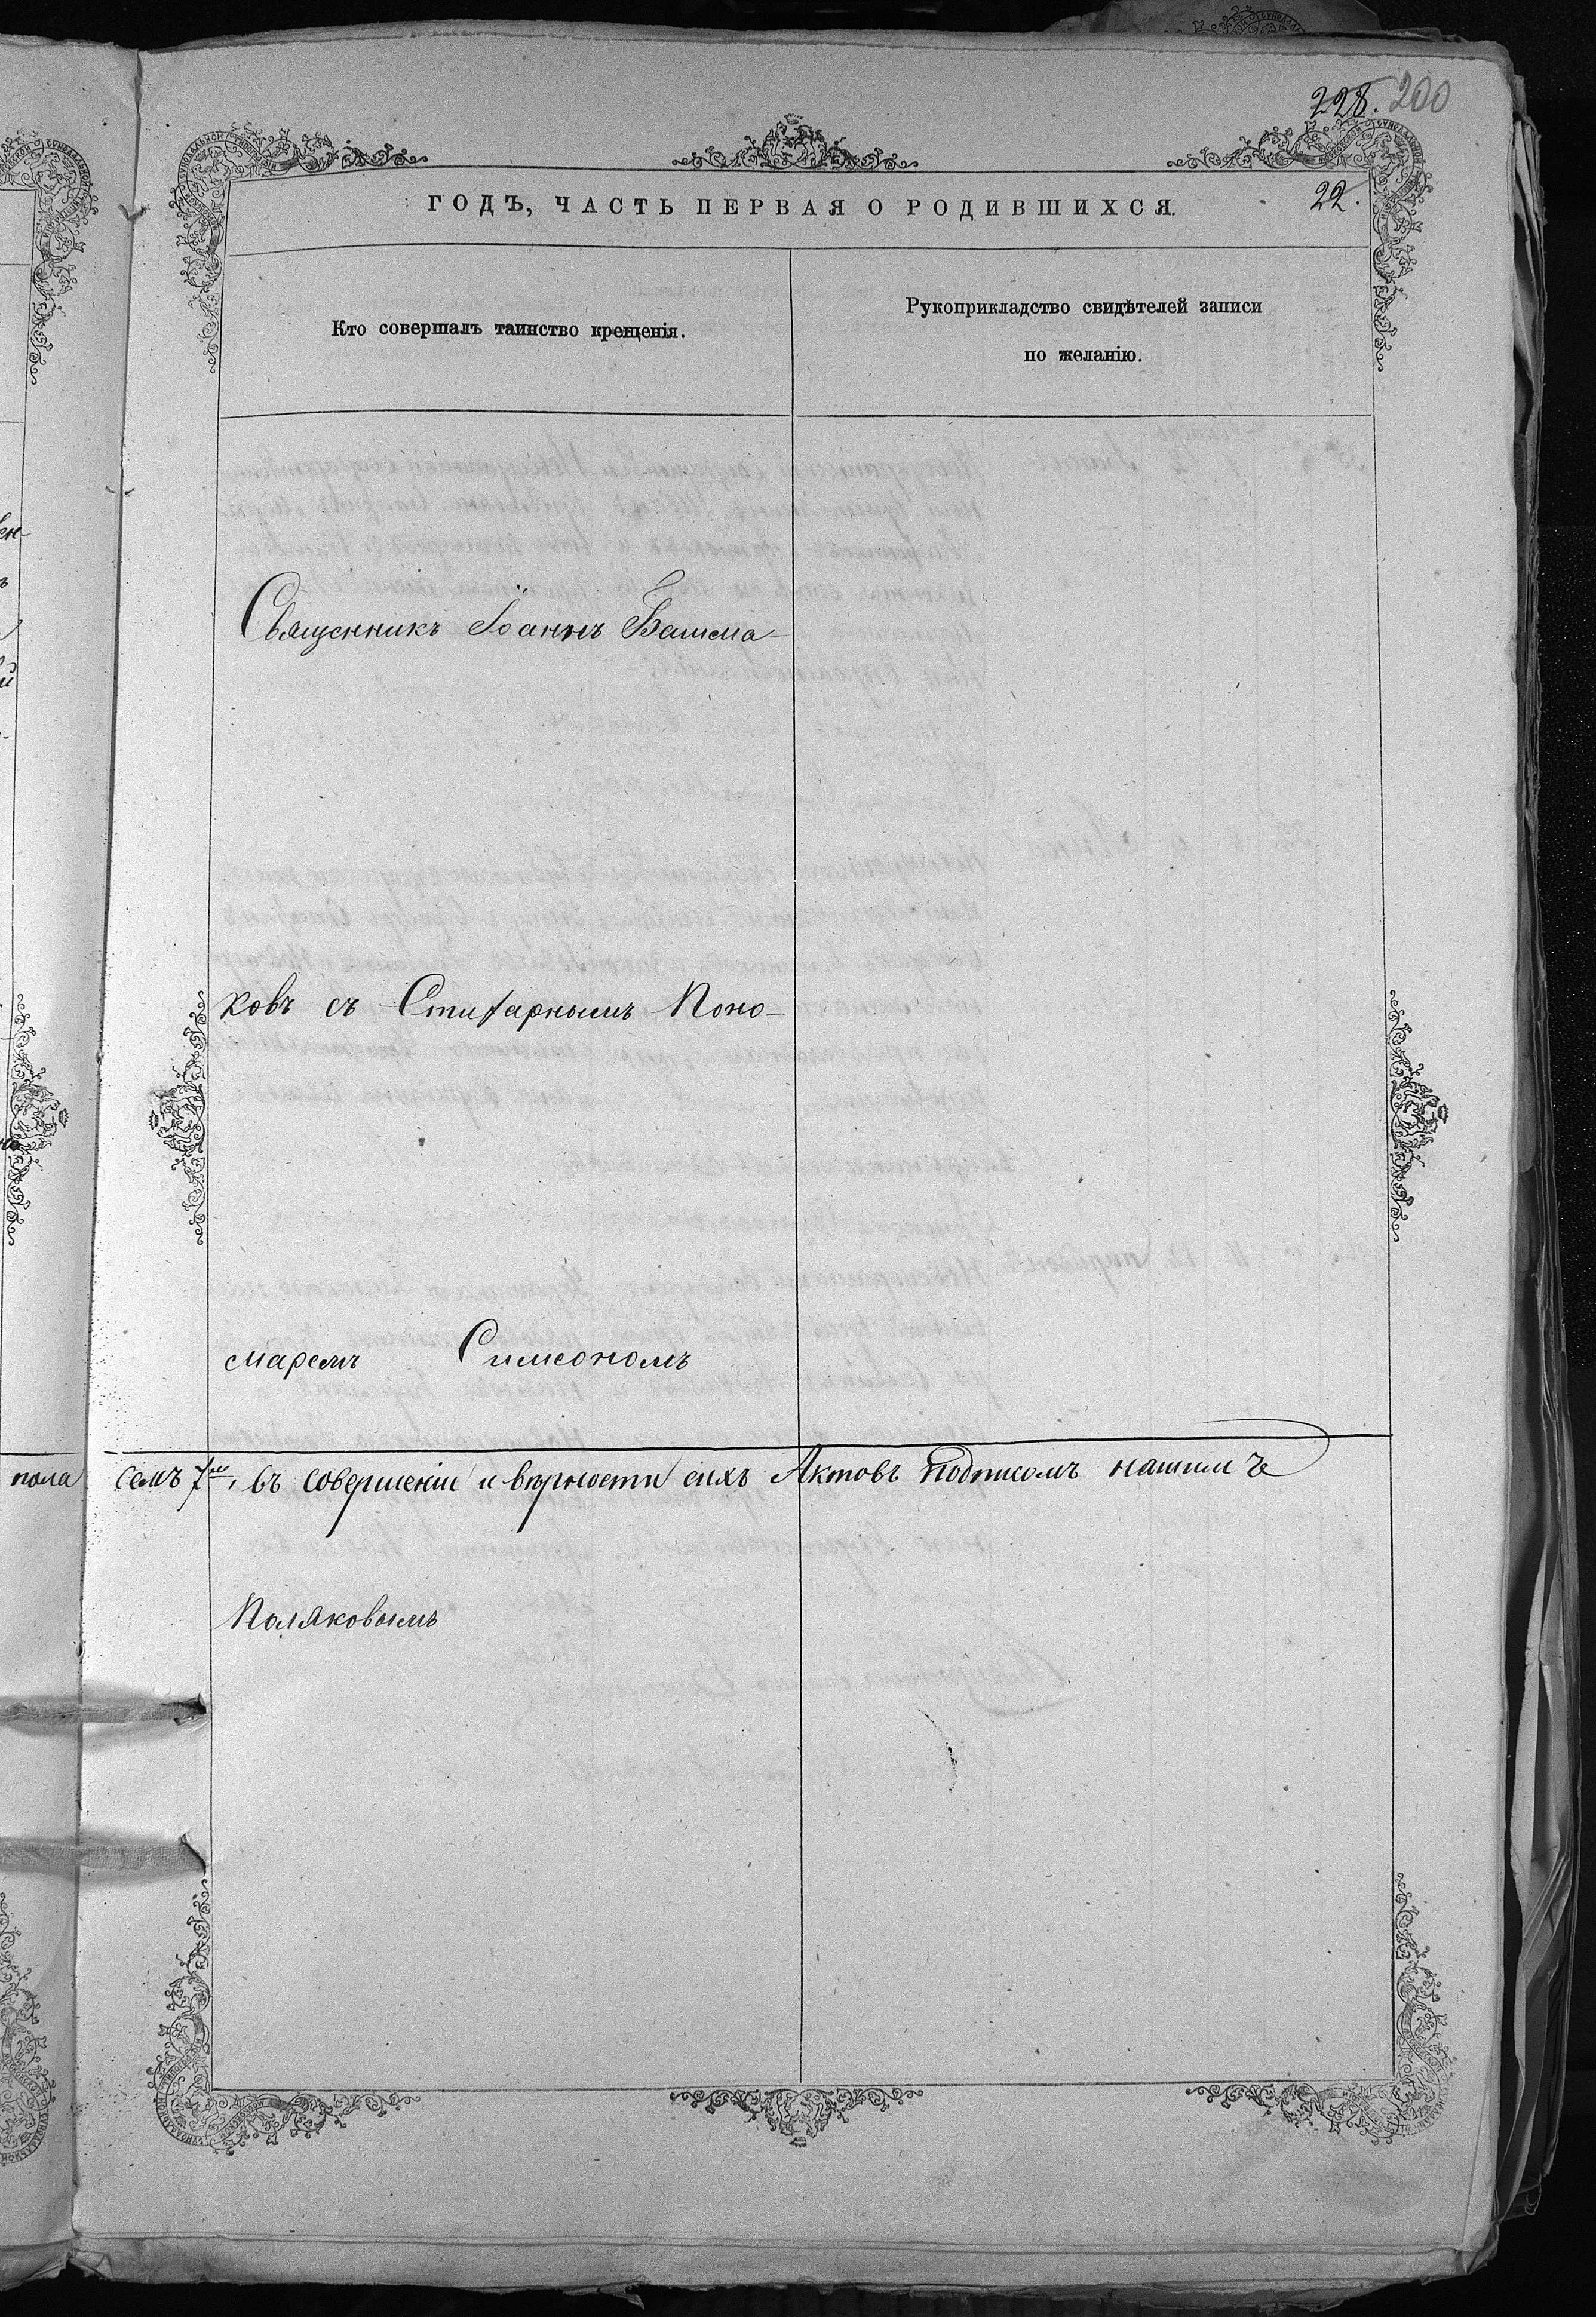 228. 200
ГОДЪ, ЧАСТЬ ПЕРВАЯ О РОДИВШИХСЯ.
22.
Кто совершалъ таинство крещенія.
Рукоприкладство свидѣтелей записи
по желанію.
Священникъ Іоаннъ Башма-
ковъ съ Стихарнымъ Поно-
маремъ Симеономъ
пола семъ 7, въ совершеніи и вѣрности сихъ Актовъ подписомъ нашимъ
Поляковымъ